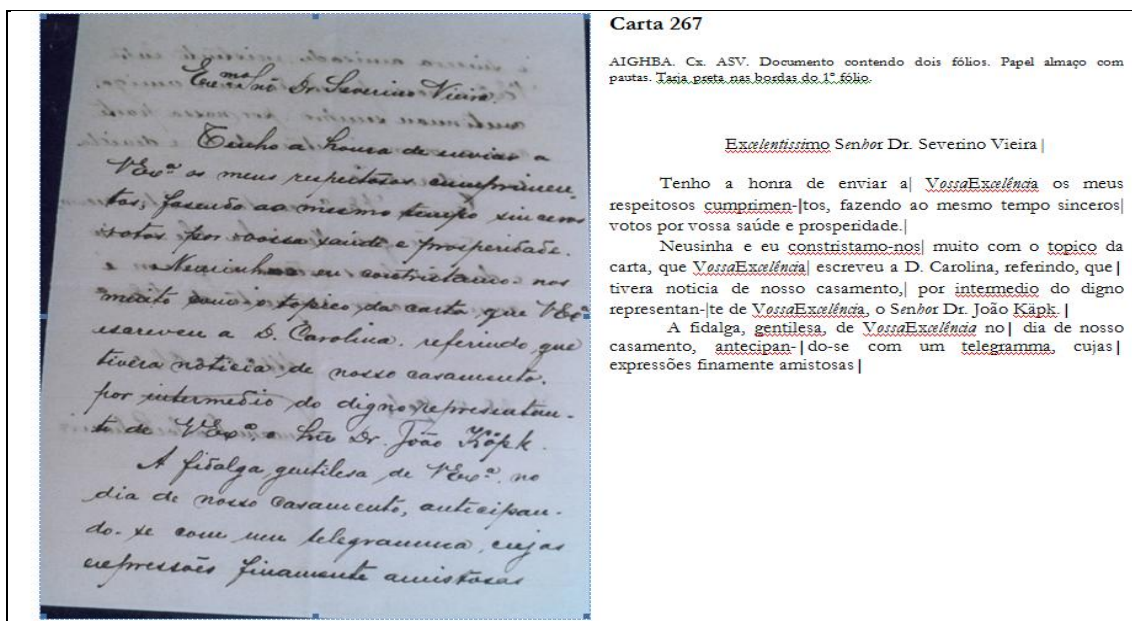 Exmo Snr Dr Severino Vieira.
Tenho a honra de enviar a
VExª os meus respeitosos cumprimen-
tos, fasendo ao mesmo tempo sinceros
votos por vossa saúde e prosperidade.
Neusinha e eu constristamo-nos
muito com o topico da carta que VExª
escreveu a D. Carolina, referindo que
tivéra noticia, de nosso casamento,
por intermedio do digno representan-
te de VExª, o Snr Dr. João Köpk.
A fidalga, gentilesa, de VExª, no
dia de nosso casamento, antecipan-
do-se com um telegramma, cujas
expressões finamente amistosas
Carta 267
AIGHBA. Cx. ASV. Documento contendo dois fólios. Papel almaço com
pautas. Tarja preta nas bordas do 1º fólio.
Excelentissimo Senhor Dr. Severino Vieira|
Tenho a honra de enviar a| VossaExcelência os meus
respeitosos cumprimen-|tos, fazendo ao mesmo tempo sinceros|
votos por vossa saúde e prosperidade.|
Neusinha e eu constristamo-nos| muito com o topico da
carta, que VossaExcelência| escreveu a D. Carolina, referindo, que|
tivera noticia de nosso casamento,| por intermedio do digno
representan-|te de VossaExcelência, o Senhor Dr. João Käpk. |
A fidalga, gentilesa, de VossaExcelência no| dia de nosso
casamento, antecipan-|do-se com um telegramma, cujas|
expressões finamente amistosas|